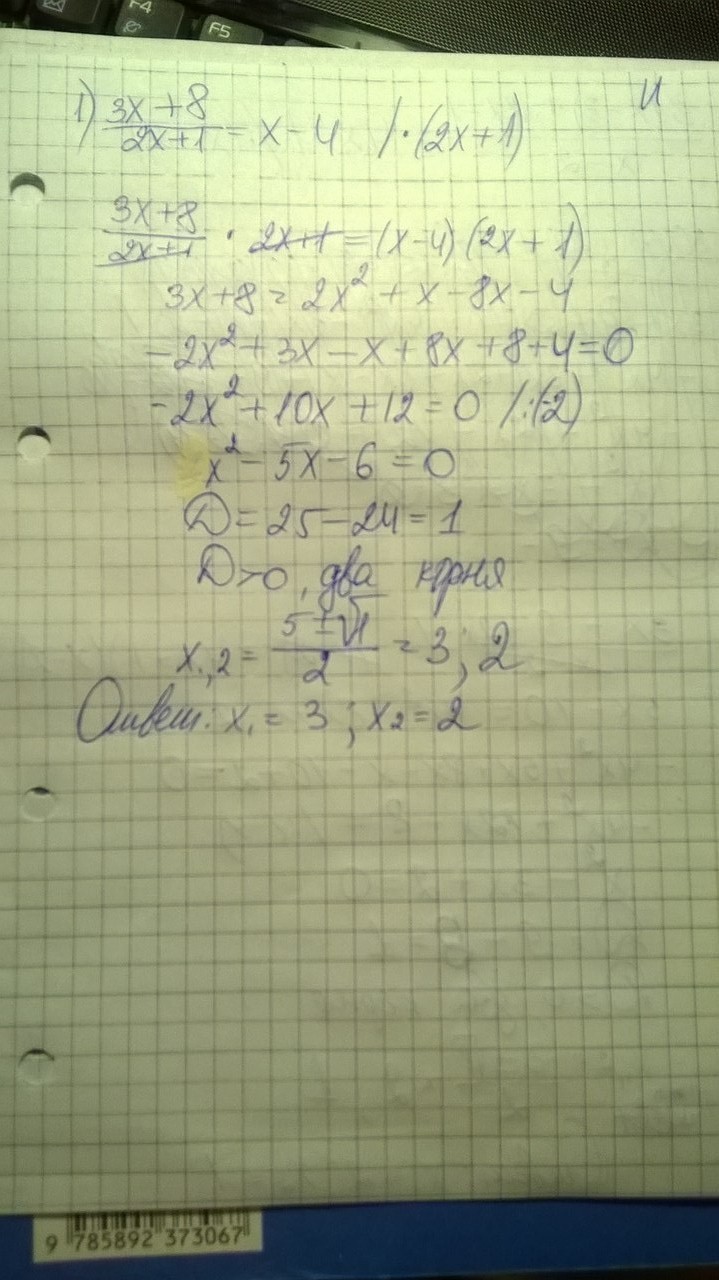 F4
F5
И
1) (3x+8)/(2x+1) = x-4 /·(2x+1)
(3x+8)/(2x+1) · 2x+1 = (x-4)(2x+1)
3x+8 = 2x² + x - 8x - 4
-2x² + 3x - x + 8x + 8 + 4 = 0
-2x² + 10x + 12 = 0 /:(-2)
x² - 5x - 6 = 0
D = 25 - 24 = 1
D > 0, два корня
x₁,₂ = (5±√1)/2 = 3; 2
Ответ: x₁ = 3; x₂ = 2
9 785892 373067